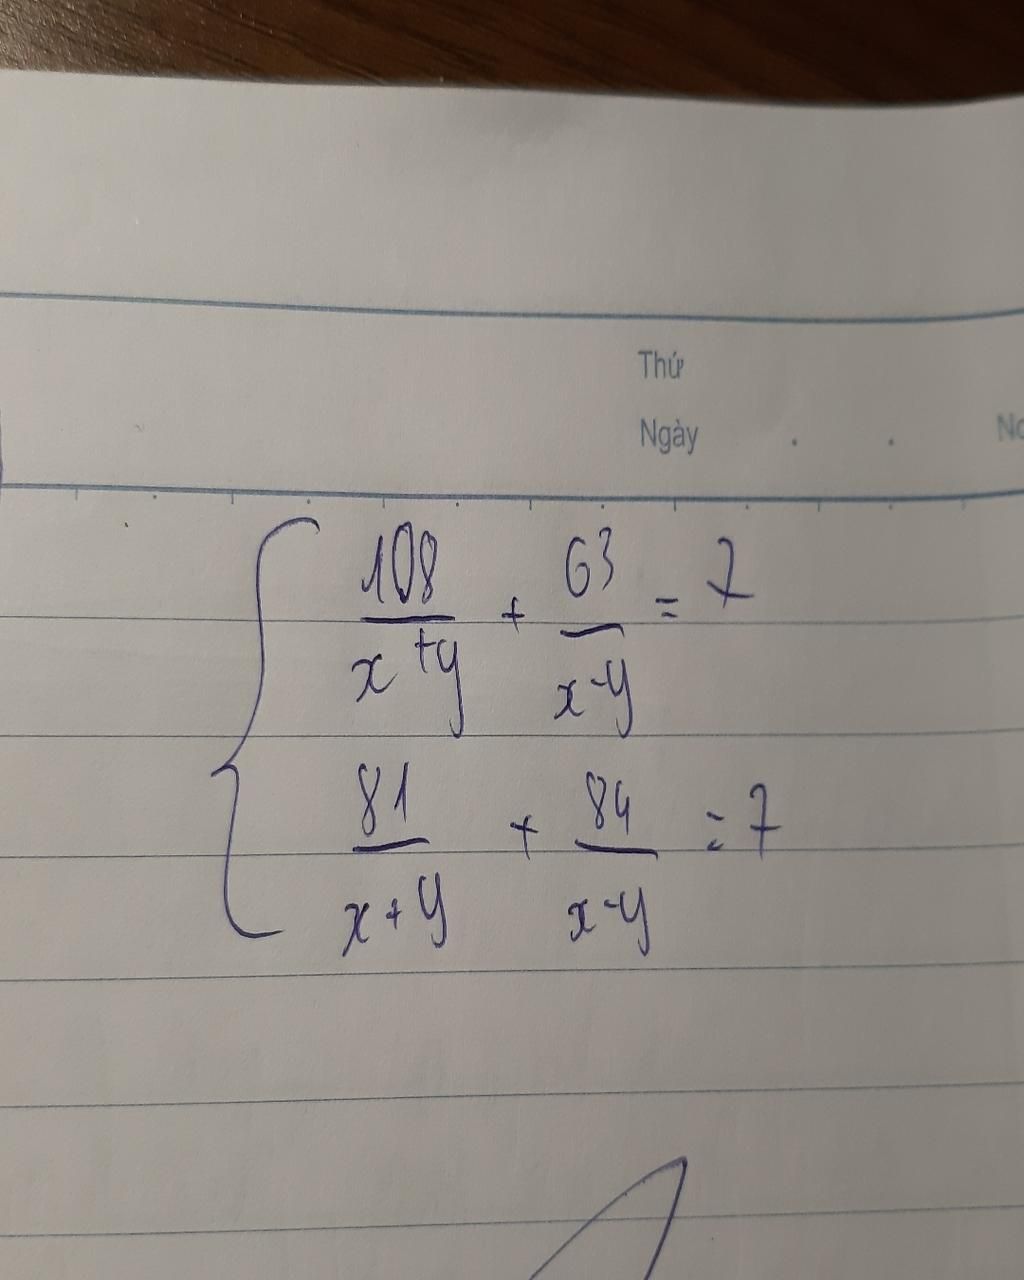 Thứ
Ngày . .
108/(x+y) + 63/(x-y) = 7
81/(x+y) + 84/(x-y) = 7